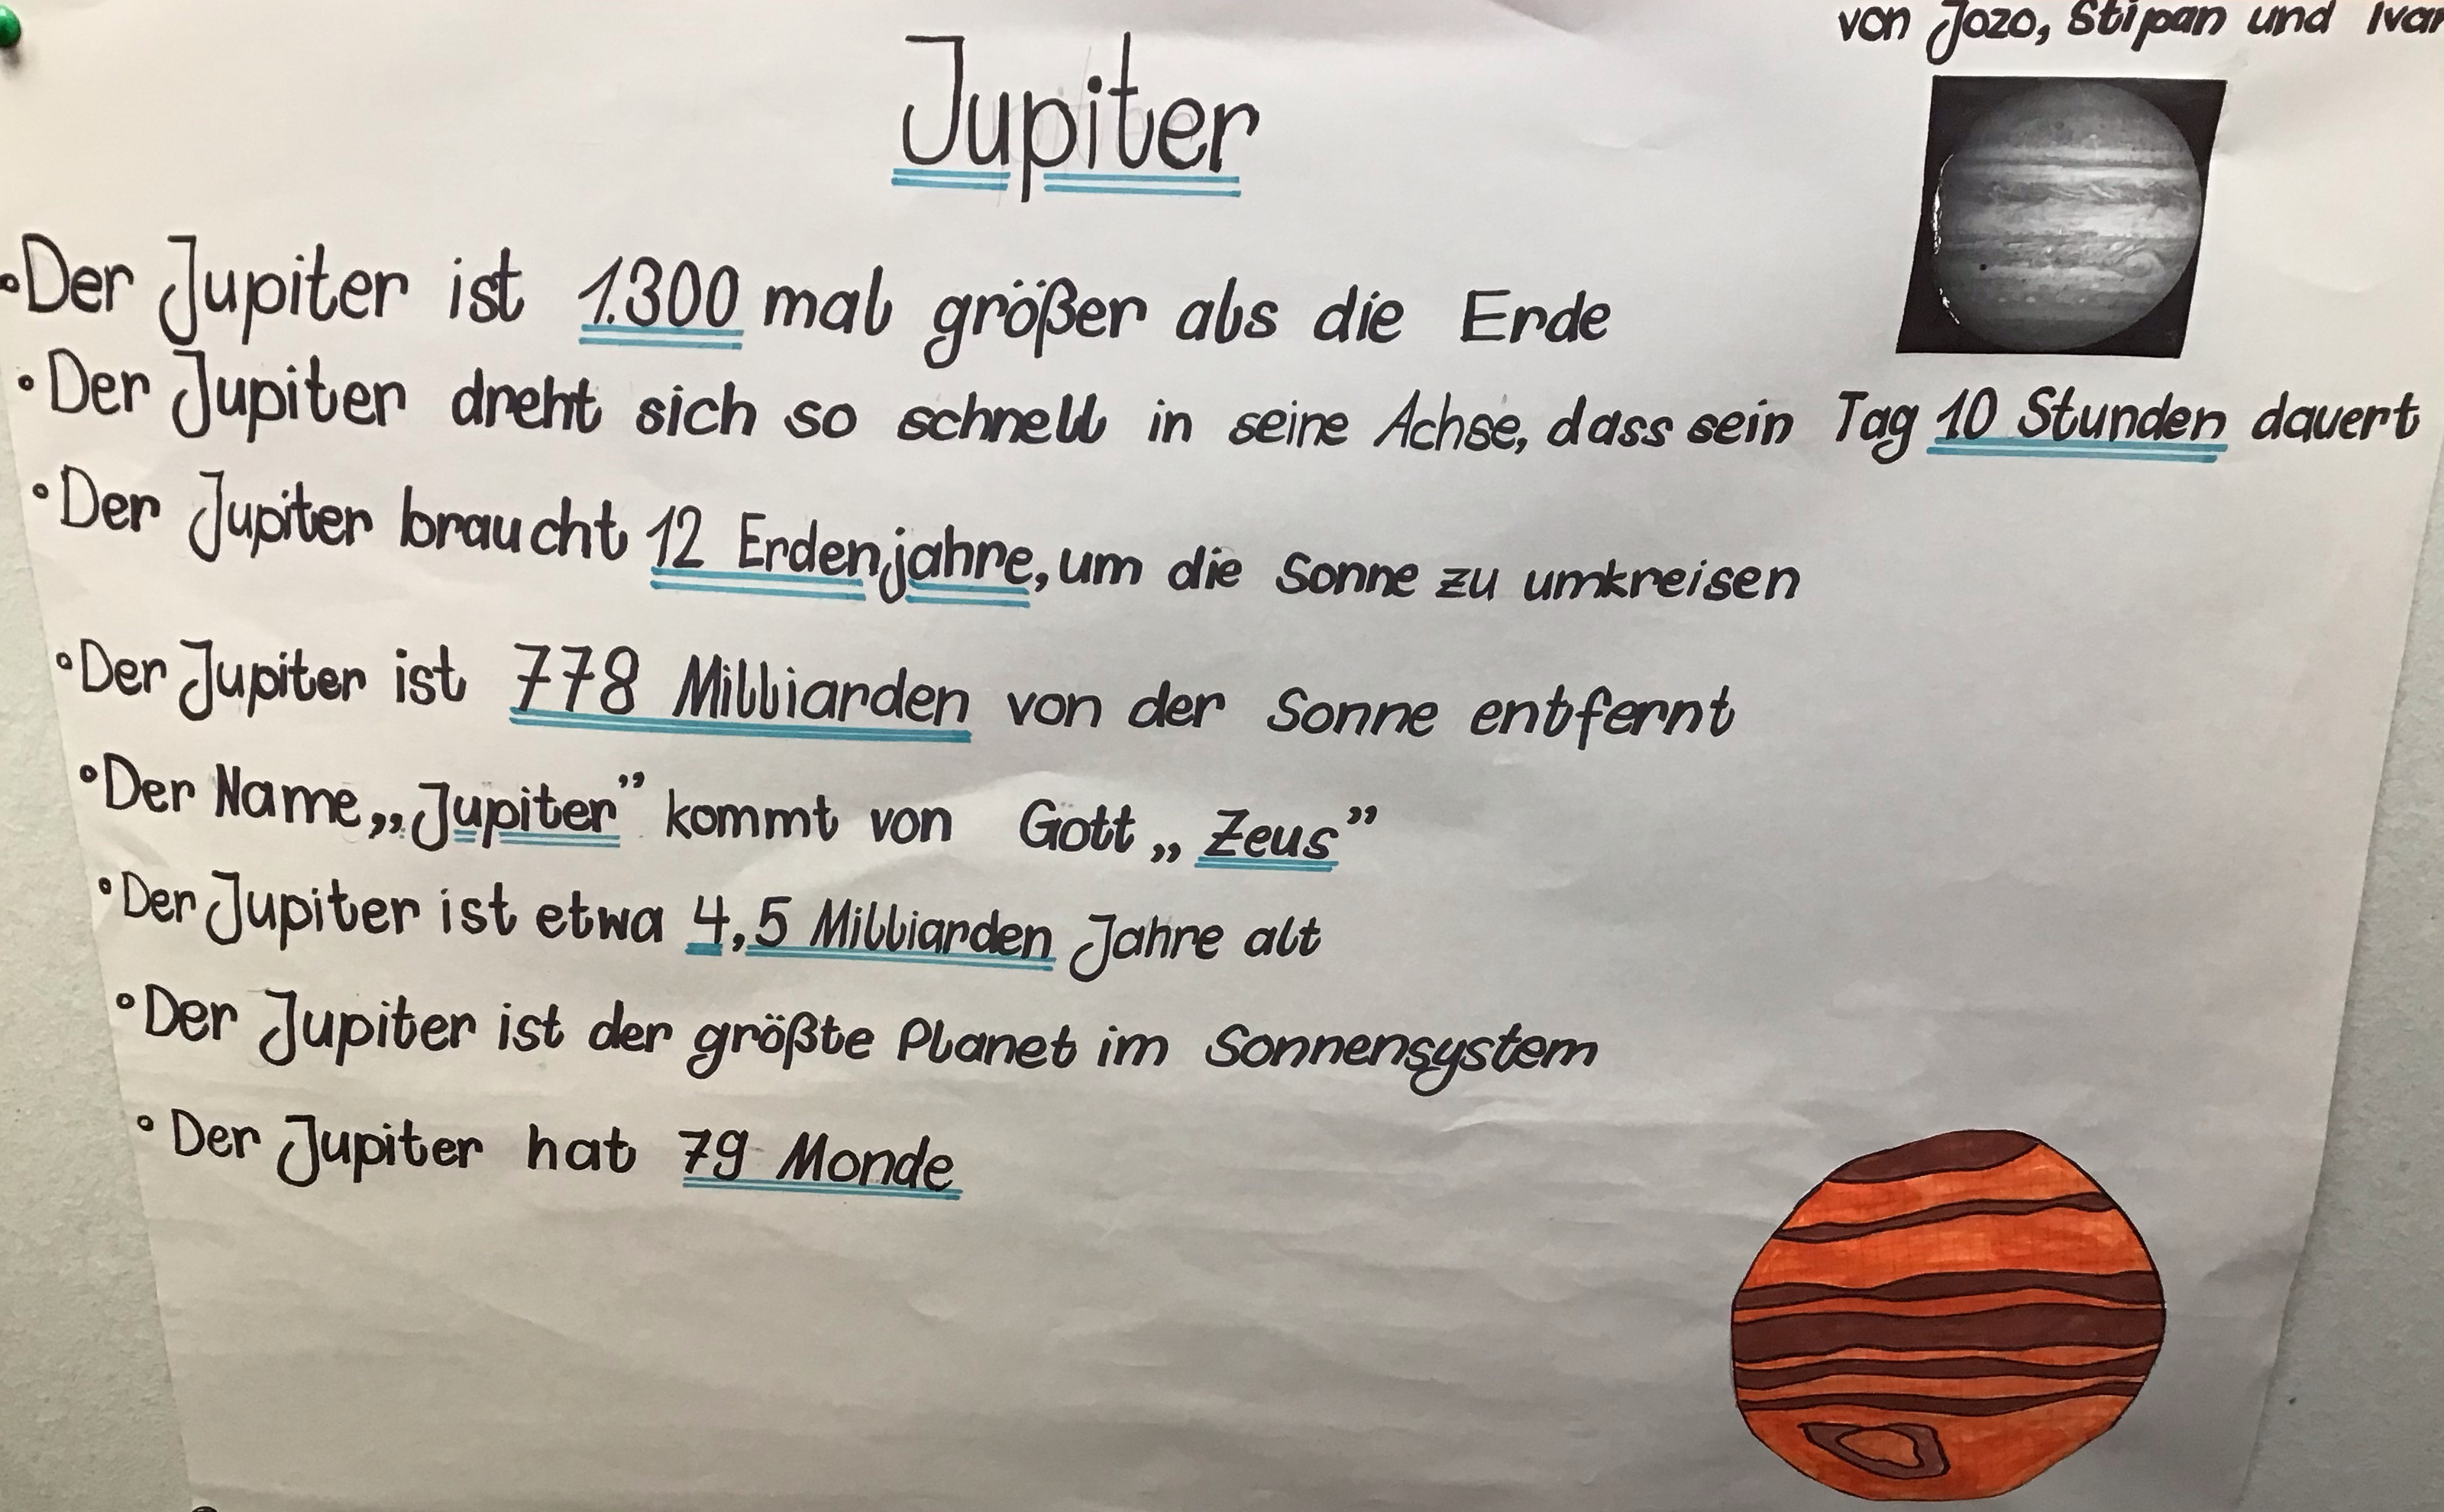 von Jozo, Stipan und Ivan
Jupiter
• Der Jupiter ist 1.300 mal größer als die Erde
• Der Jupiter dreht sich so schnell in seine Achse, dass sein Tag 10 Stunden dauert
• Der Jupiter braucht 12 Erdenjahre, um die Sonne zu umkreisen
• Der Jupiter ist 778 Milliarden von der Sonne entfernt
• Der Name „Jupiter” kommt von Gott „Zeus”
• Der Jupiter ist etwa 4,5 Milliarden Jahre alt
• Der Jupiter ist der größte Planet im Sonnensystem
• Der Jupiter hat 79 Monde